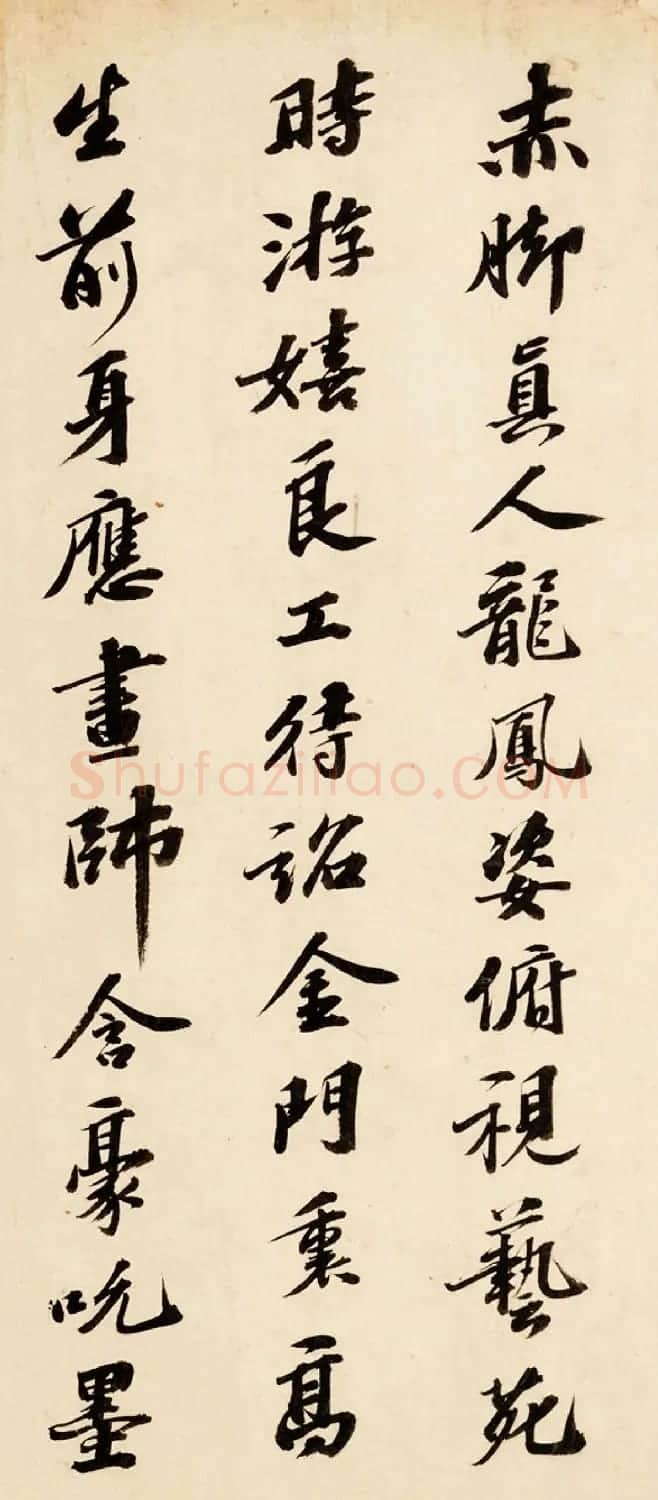 赤脚眞人龍鳳姿俯視藝苑
時游嬉良工待詔金門裏高
生前身應畫師含豪吮墨
Shufaziliao.COM